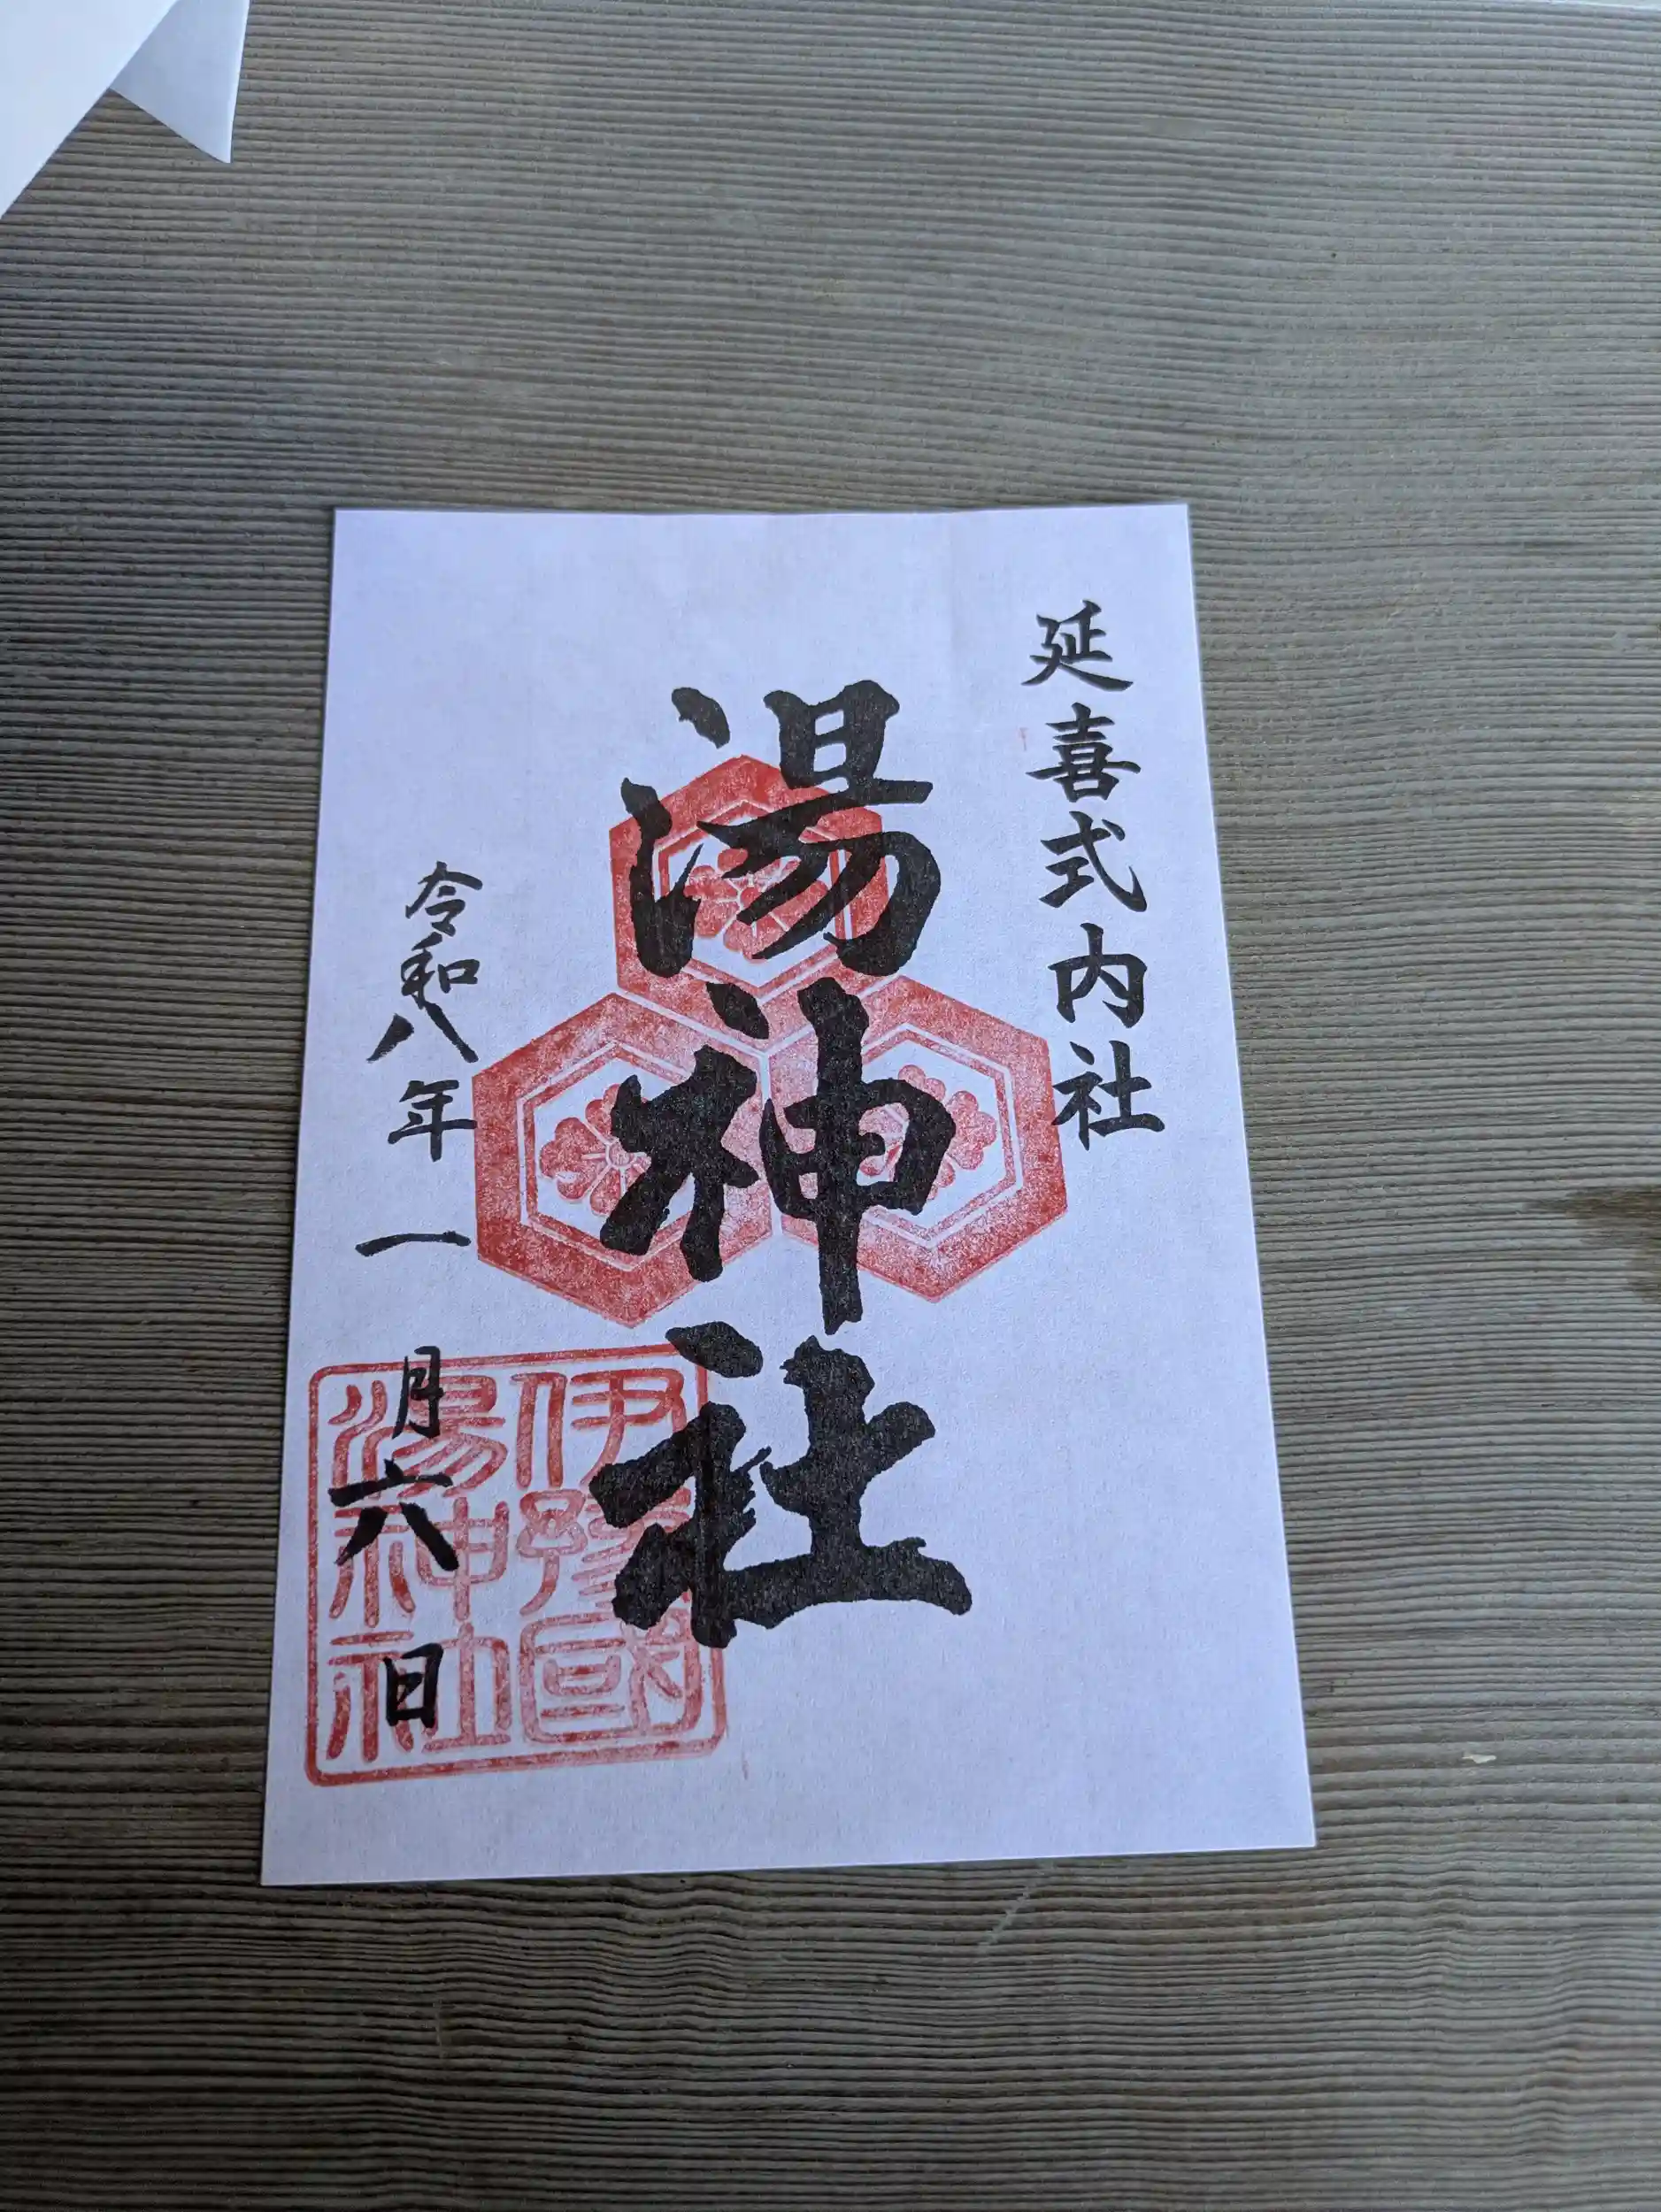 延喜式内社
湯神社
令和八年一月六日
伊豫國
湯神社